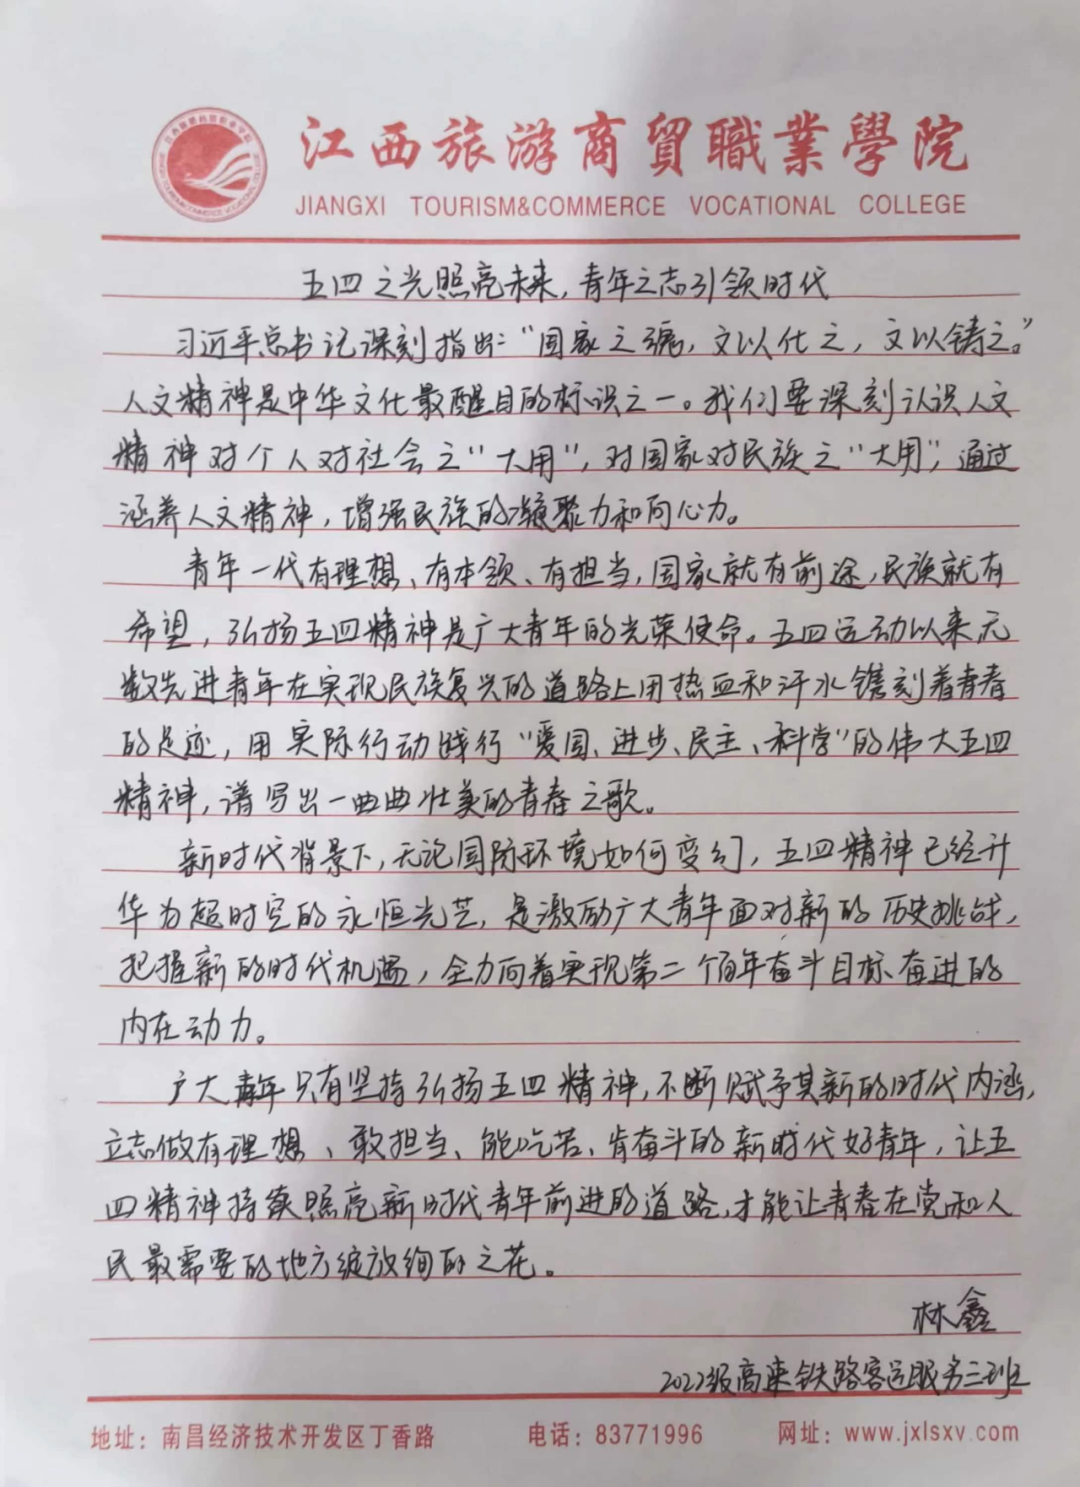 江西旅游商貿職業學院
JIANGXI TOURISM&COMMERCE VOCATIONAL COLLEGE
五四之光照亮未来,青年之志引领时代
习近平总书记深刻指出:"国家之强,文以化之,文以铸之。"
人文精神是中华文化最醒目的标识之一。我们要深刻认识人文
精神对个人对社会之"大用",对国家对民族之"大用",通过
涵养人文精神,增强民族的凝聚力和向心力。
青年一代有理想、有本领、有担当,国家就有前途,民族就有
希望,弘扬五四精神是广大青年的光荣使命。五四运动以来无
数先进青年在实现民族复兴的道路上用热血和汗水镌刻着青春
的足迹,用实际行动践行"爱国、进步、民主、科学"的伟大五四
精神,谱写出一曲曲壮美的青春之歌。
新时代背景下,无论国际环境如何变幻,五四精神已经升
华为超时空的永恒光芒,是激励广大青年面对新的历史挑战,
把握新的时代机遇,全力向着实现第二个百年奋斗目标奋进的
内在动力。
广大青年只有坚持弘扬五四精神,不断赋予其新的时代内涵,
立志做有理想、敢担当、能吃苦、肯奋斗的新时代好青年,让五
四精神持续照亮新时代青年前进的道路,才能让青春在党和人
民最需要的地方绽放绚丽之花。
林鑫
2022级高速铁路客运服务三班
地址:南昌经济技术开发区丁香路 电话:83771996 网址:www.jxlsxv.com